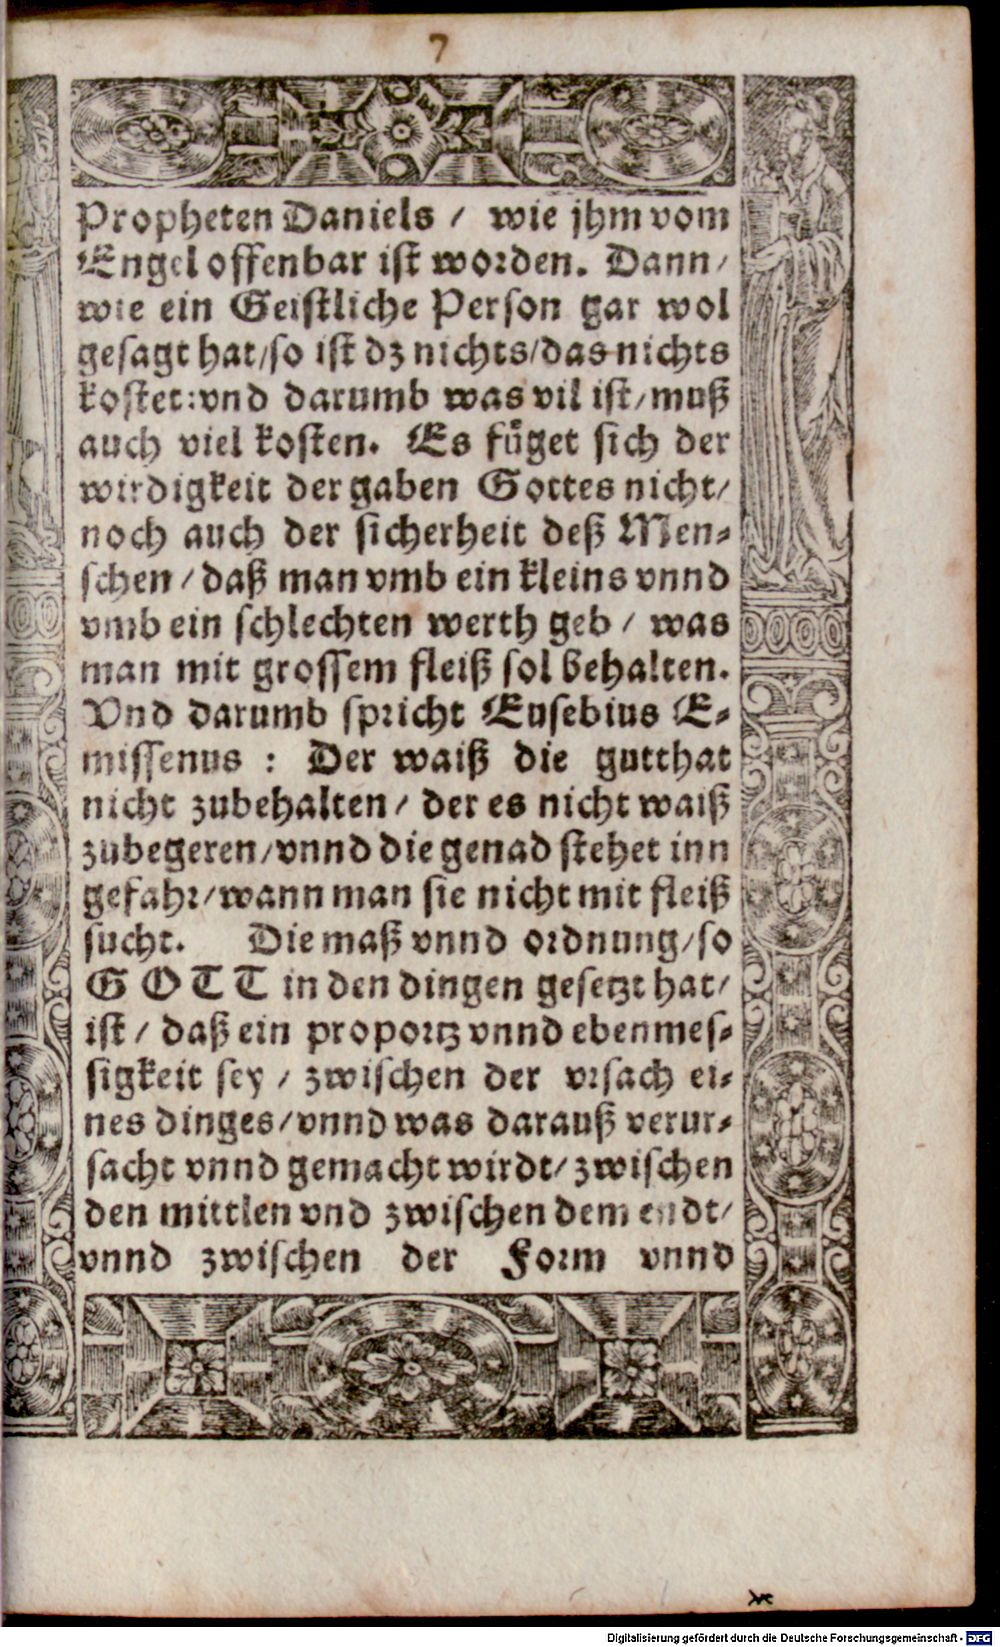 7
Propheten Daniels / wie jhm vom
Engel offenbar ist worden. Dann/
wie ein Geistliche Person gar wol
gesagt hat/so ist dz nichts/das nichts
kostet:vnd darumb was vil ist/muß
auch viel kosten. Es fůget sich der
wirdigkeit der gaben Gottes nicht/
noch auch der sicherheit deß Men-
schen / daß man vmb ein kleins vnnd
vmb ein schlechten werth geb / was
man mit grossem fleiß sol behalten.
Vnd darumb spricht Eusebius E-
missenus : Der waiß die gutthat
nicht zubehalten / der es nicht waiß
zubegeren/vnnd die genad stehet inn
gefahr/wann man sie nicht mit fleiß
sucht. Die maß vnnd ordnung/so
GOTT in den dingen gesetzt hat/
ist / daß ein proportz vnnd ebenmes-
sigkeit sey / zwischen der vrsach ei-
nes dinges/vnnd was darauß verur-
sacht vnnd gemacht wirdt/zwischen
den mittlen vnd zwischen dem endt/
vnnd zwischen der Form vnnd
Digitalisierung gefördert durch die Deutsche Forschungsgemeinschaft - DFG